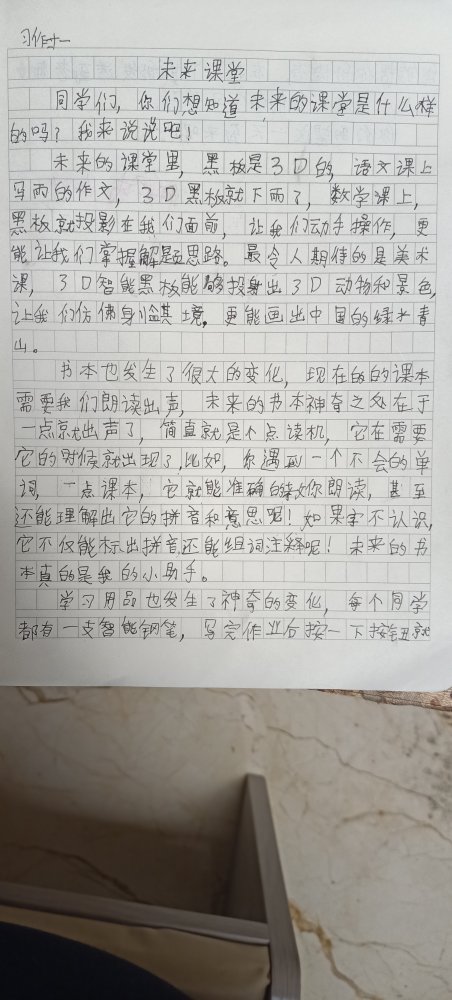 习作十一
未来课堂
同学们，你们想知道未来的课堂是什么样
的吗？我来说说吧！
未来的课堂里，黑板是3D的，语文课上
写雨的作文，3D黑板就下雨了，数学课上，
黑板就投影在我们面前，让我们动手操作，更
能让我们掌握解题思路。最令人期待的是美术
课，3D智能黑板能够投射出3D动物和景色，
让我们仿佛身临其境，更能画出中国的绿水青
山。
书本也发生了很大的变化，现在的的课本
需要我们朗读出声，未来的书本神奇之处在于
一点就出声了，简直就是个点读机，它在需要
它的时候就出现了，比如，你遇到一个不会的单
词，一点课本，它就能准确的教你朗读，甚至
还能理解出它的拼音和意思呢！如果字不认识，
它不仅能标出拼音还能组词注释呢！未来的书
本真的是我的小助手。
学习用品也发生了神奇的变化，每个同学
都有一支智能钢笔，写完作业后按一下按钮就